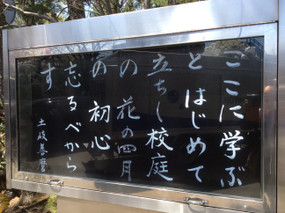 ここに学ぶ
とはじめて
立ちし校庭
の花の四月
の初心
忘るべから
ず
土岐善麿